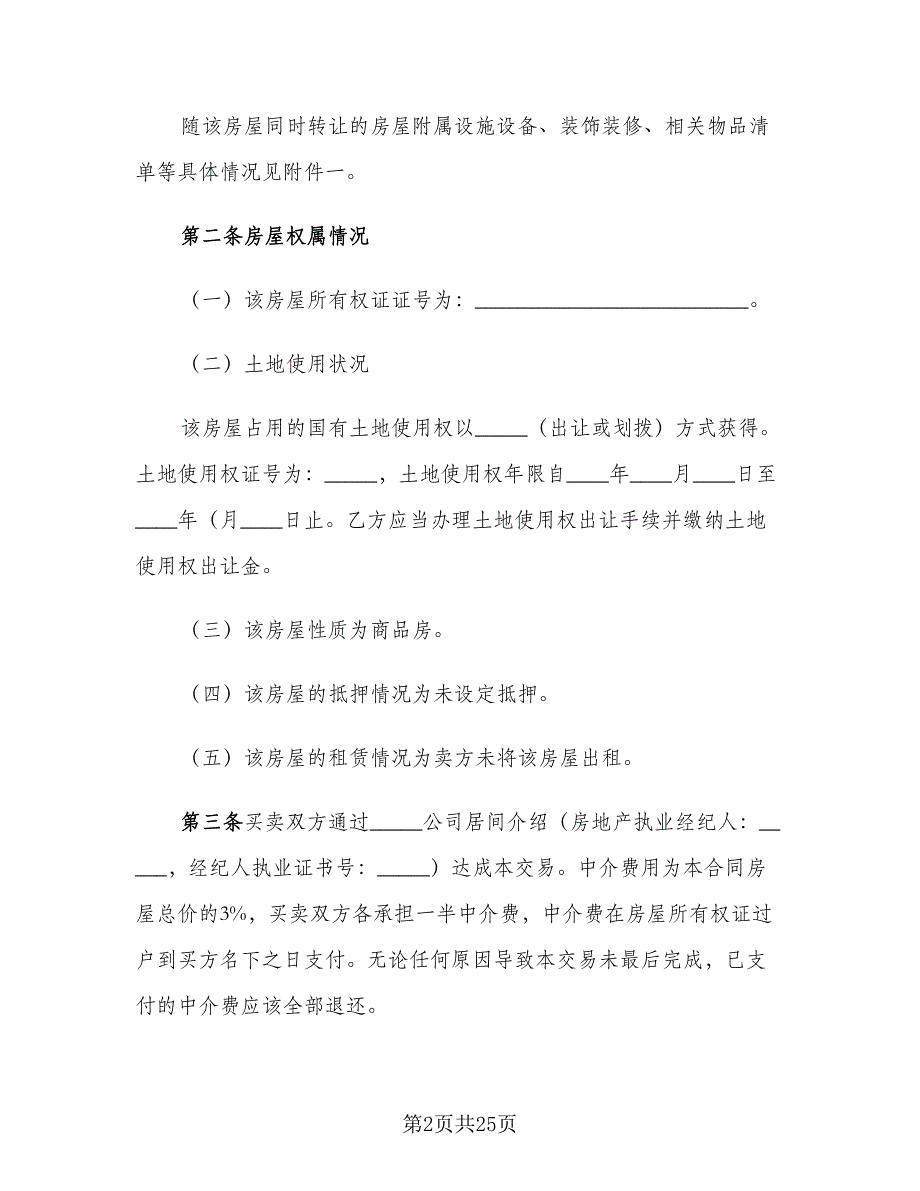 随该房屋同时转让的房屋附属设施设备、装饰装修、相关物品清
单等具体情况见附件一。
第二条房屋权属情况
（一）该房屋所有权证证号为：__________________________。
（二）土地使用状况
该房屋占用的国有土地使用权以_____（出让或划拨）方式获得。
土地使用权证号为：_____，土地使用权年限自____年____月____日至
____年（月____日止。乙方应当办理土地使用权出让手续并缴纳土地
使用权出让金。
（三）该房屋性质为商品房。
（四）该房屋的抵押情况为未设定抵押。
（五）该房屋的租赁情况为卖方未将该房屋出租。
第三条买卖双方通过_____公司居间介绍（房地产执业经纪人：__
___，经纪人执业证书号：_____）达成本交易。中介费用为本合同房
屋总价的3%，买卖双方各承担一半中介费，中介费在房屋所有权证过
户到买方名下之日支付。无论任何原因导致本交易未最后完成，已支
付的中介费应该全部退还。
第2页共25页